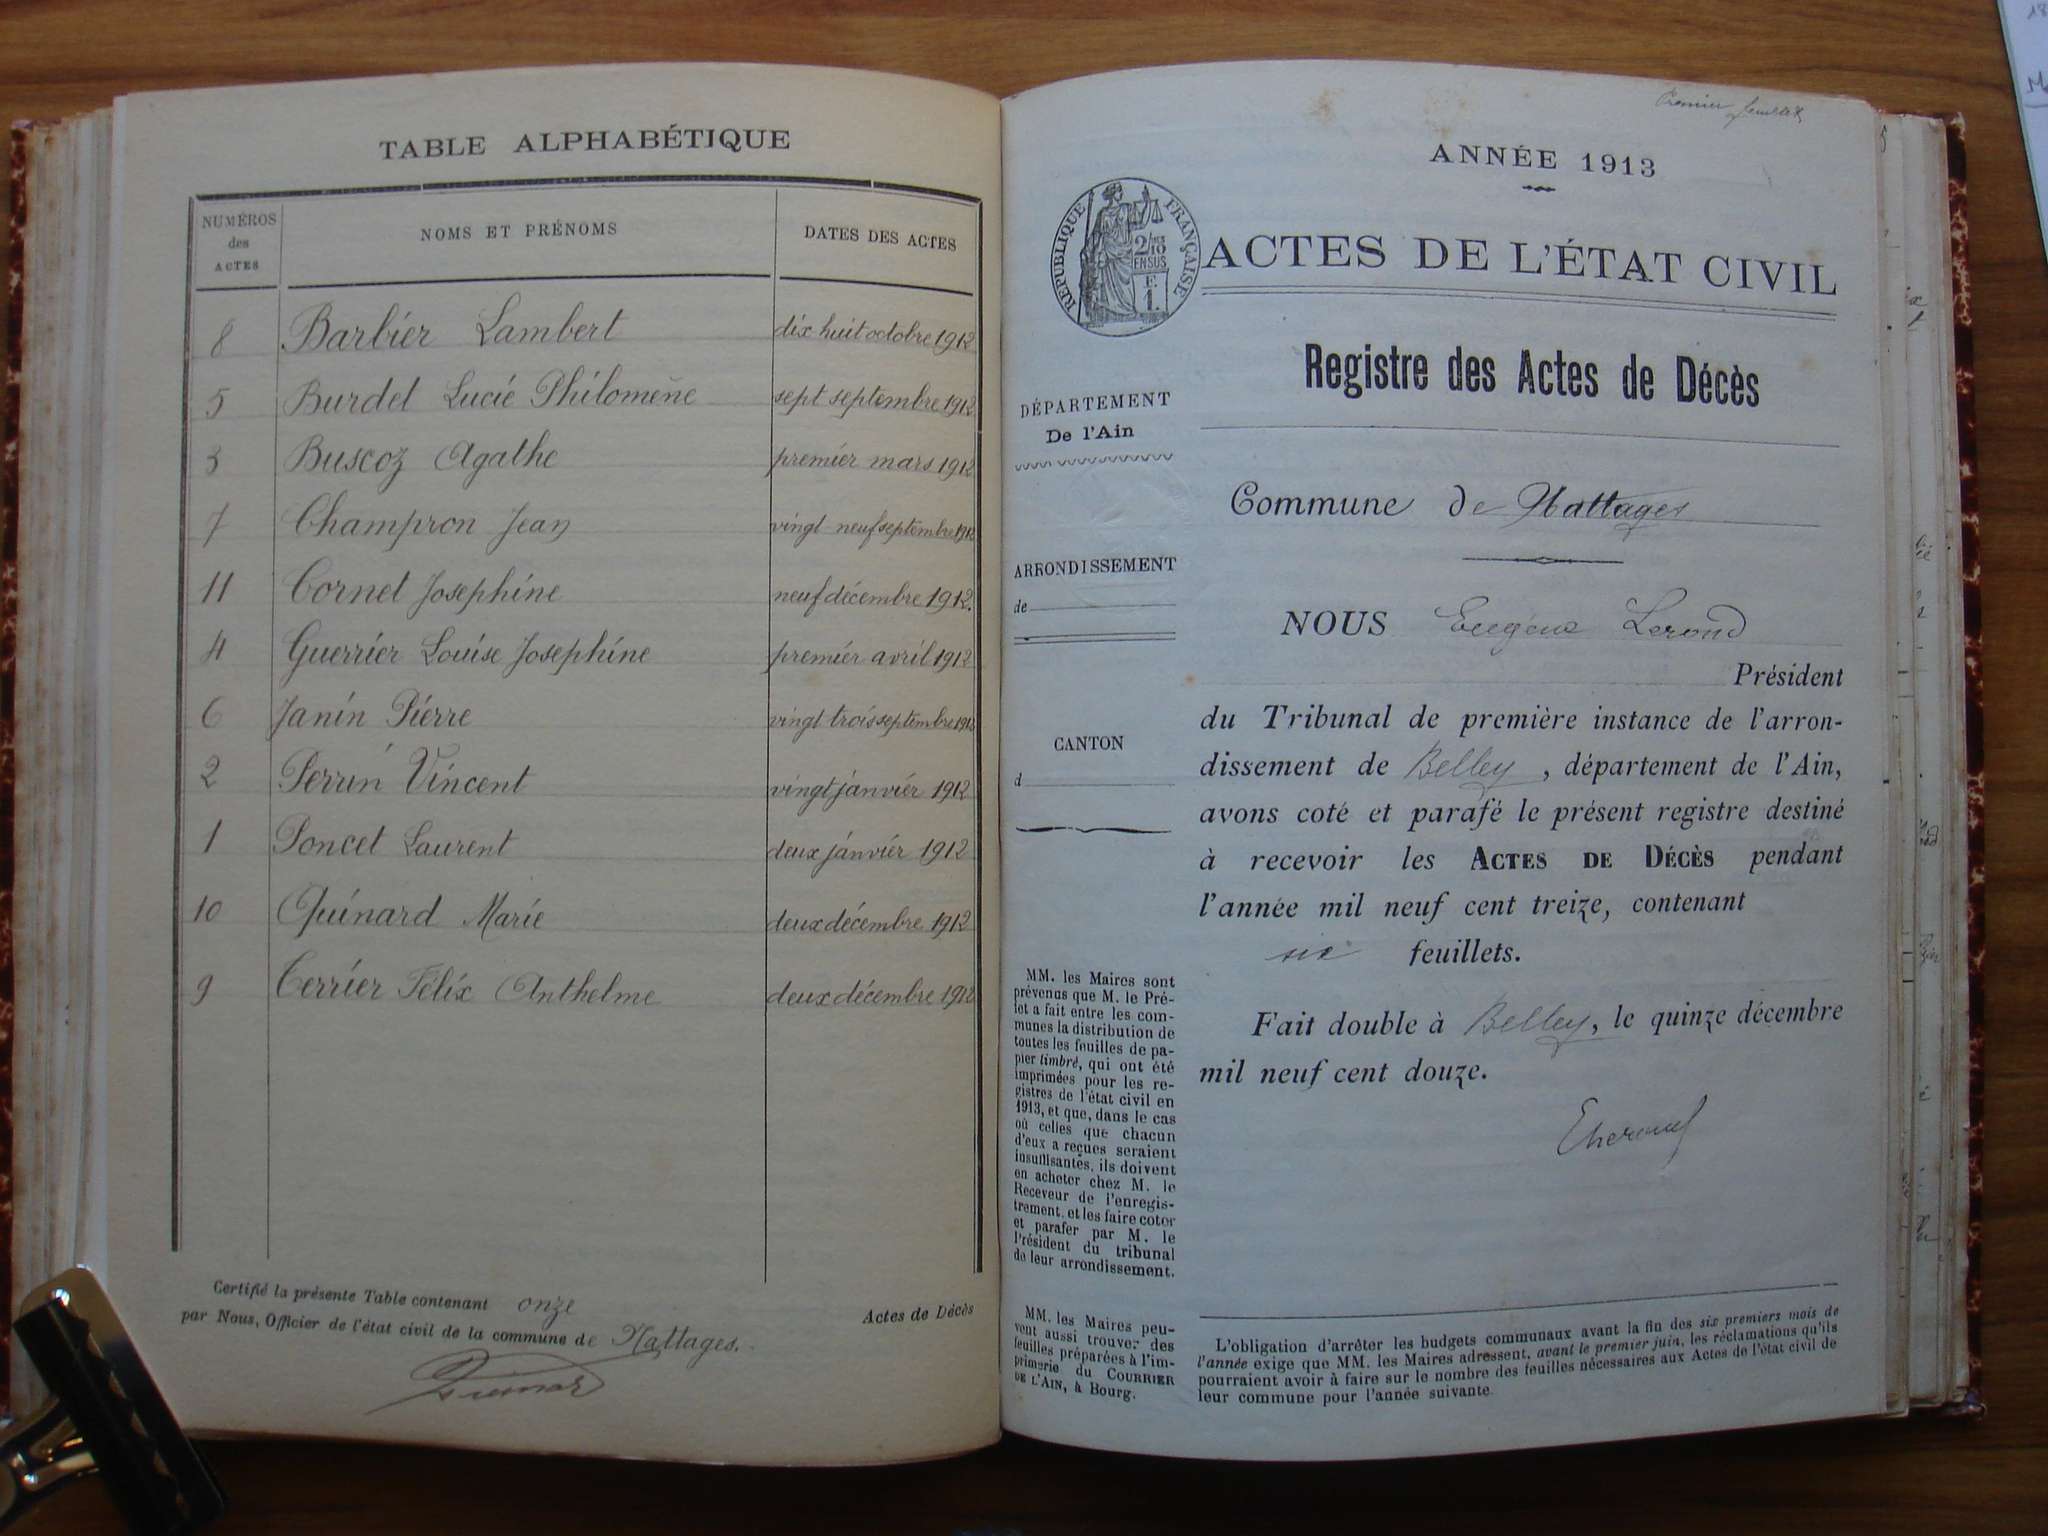 TABLE ALPHABÉTIQUE
NUMÉROS des ACTES NOMS ET PRÉNOMS DATES DES ACTES
8 Barbier Lambert dix huit octobre 1912
5 Burdet Lucie Philomène sept septembre 1912
3 Buscoz Agathe premier mars 1912
7 Champron Jean vingt neuf septembre 1912
11 Cornet Josephine neuf décembre 1912.
4 Guerrier Louise Josephine premier avril 1912
6 Janin Pierre vingt trois septembre 1912
2 Perrin Vincent vingt janvier 1912
1 Poncet Laurent deux janvier 1912
10 Quinard Marie deux décembre 1912
9 Terrier Félix Anthelme deux décembre 1912
Certifié la présente Table contenant onze Actes de Décès
par Nous, Officier de l'état civil de la commune de Nattages.
Premier feuillet
ANNÉE 1913
RÉPUBLIQUE FRANÇAISE
2/10
EN SUS
E.
1.
ACTES DE L'ÉTAT CIVIL
Registre des Actes de Décès
DÉPARTEMENT
De l'Ain
Commune de Nattages
ARRONDISSEMENT
de
NOUS Eugène Lerond
Président
du Tribunal de première instance de l'arron-
dissement de Belley, département de l'Ain,
avons coté et parafé le présent registre destiné
à recevoir les ACTES DE DÉCÈS pendant
l'année mil neuf cent treize, contenant
six feuillets.
Fait double à Belley, le quinze décembre
mil neuf cent douze.
CANTON
d
MM. les Maires sont
prévenus que M. le Pré-
fet a fait entre les com-
munes la distribution de
toutes les feuilles de pa-
pier timbré, qui ont été
imprimées pour les re-
gistres de l'état civil en
1913, et que, dans le cas
où celles que chacun
d'eux a reçues seraient
insuffisantes, ils doivent
en acheter chez M. le
Receveur de l'enregis-
trement, et les faire coter
et parafer par M. le
Président du tribunal
de leur arrondissement.
MM. les Maires peu-
vent aussi trouver des
feuilles préparées à l'im-
primerie du COURRIER
DE L'AIN, à Bourg.
L'obligation d'arrêter les budgets communaux avant la fin des six premiers mois de
l'année exige que MM. les Maires adressent, avant le premier juin, les réclamations qu'ils
pourraient avoir à faire sur le nombre des feuilles nécessaires aux Actes de l'état civil de
leur commune pour l'année suivante.